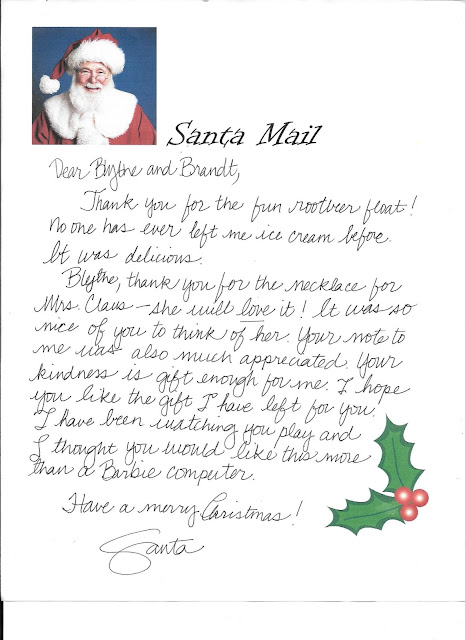 Santa Mail
Dear Blythe and Brandt,
Thank you for the fun rootbeer float!
No one has ever left me ice cream before.
It was delicious.
Blythe, thank you for the necklace for
Mrs. Claus - she will love it! It was so
nice of you to think of her. Your note to
me was also much appreciated. Your
kindness is gift enough for me. I hope
you like the gift I have left for you.
I have been watching you play and
I thought you would like this more
than a Barbie computer.
Have a merry Christmas!
Santa